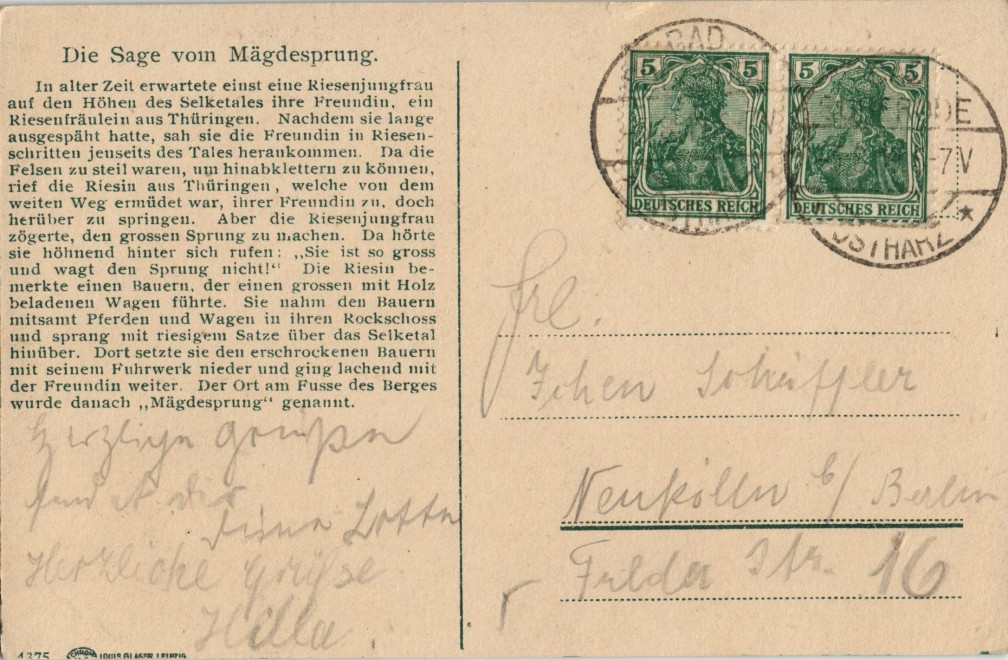 Die Sage vom Mägdesprung.
In alter Zeit erwartete einst eine Riesenjungfrau
auf den Höhen des Selketales ihre Freundin, ein
Riesenfräulein aus Thüringen. Nachdem sie lange
ausgespäht hatte, sah sie die Freundin in Riesen-
schritten jenseits des Tales herankommen. Da die
Felsen zu steil waren, um hinabklettern zu können,
rief die Riesin aus Thüringen, welche von dem
weiten Weg ermüdet war, ihrer Freundin zu, doch
herüber zu springen. Aber die Riesenjungfrau
zögerte, den grossen Sprung zu machen. Da hörte
sie höhnend hinter sich rufen: „Sie ist so gross
und wagt den Sprung nicht!“ Die Riesin be-
merkte einen Bauern, der einen grossen mit Holz
beladenen Wagen führte. Sie nahm den Bauern
mitsamt Pferden und Wagen in ihren Rockschoss
und sprang mit riesigem Satze über das Selketal
hinüber. Dort setzte sie den erschrockenen Bauern
mit seinem Fuhrwerk nieder und ging lachend mit
der Freundin weiter. Der Ort am Fusse des Berges
wurde danach „Mägdesprung“ genannt.
Herzliche Grüße
Lotte
Herzliche Grüße
Hilla.
4375 LOUIS GLASER LEIPZIG
5 5
DEUTSCHES REICH
5 5
DEUTSCHES REICH
BAD
-7V
OSTHARZ
Frl.
Schäffler
Neukölln b/ Berlin
Str. 16